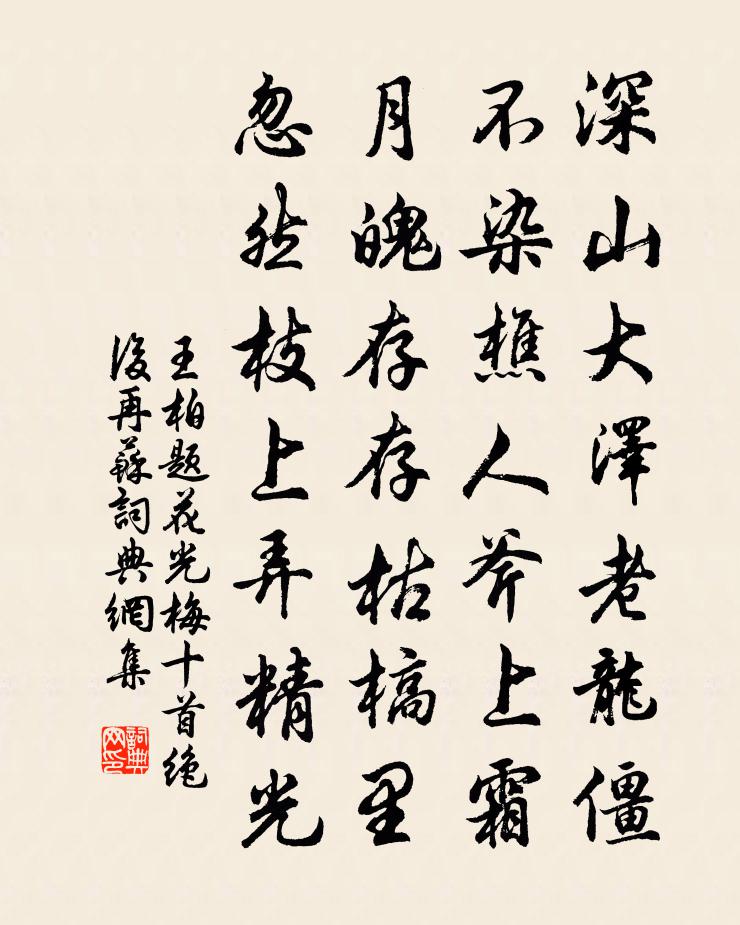 深山大澤老龍僵
不染樵人斧上霜
月魄存存枯槁里
忽然枝上弄精光
王柏題花光梅十首絶
後再蘇詞典網集
詞典
网印